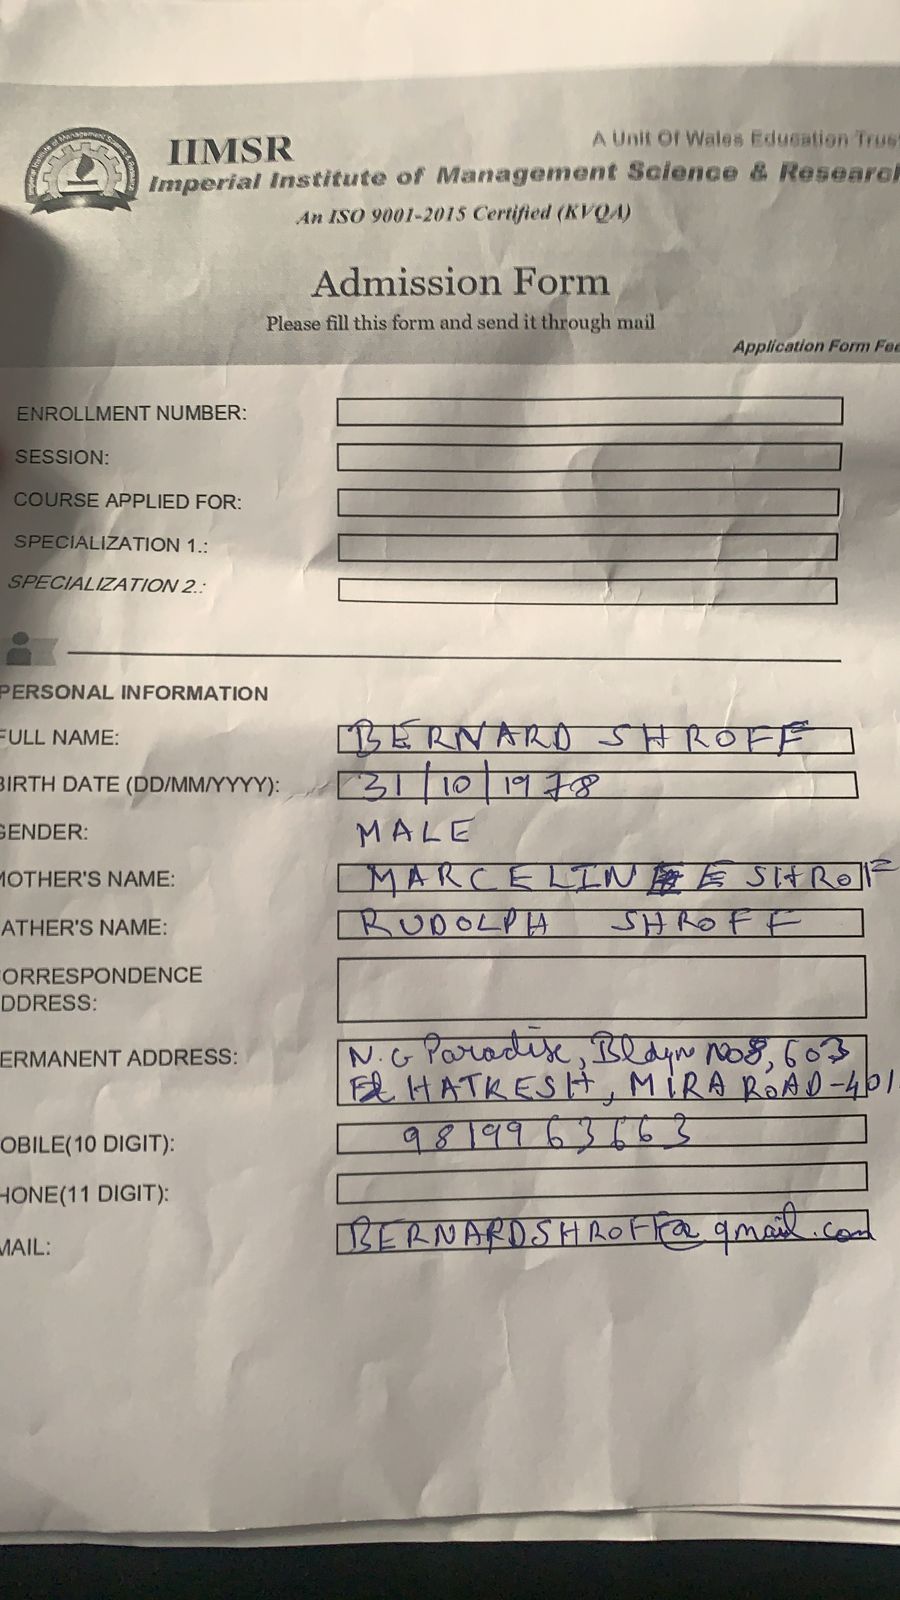 IIMSR
A Unit Of Wales Education Trus
Imperial Institute of Management Science & Research
An ISO 9001-2015 Certified (KVQA)
Admission Form
Please fill this form and send it through mail
Application Form Fee
ENROLLMENT NUMBER:
SESSION:
COURSE APPLIED FOR:
SPECIALIZATION 1.:
SPECIALIZATION 2.:
PERSONAL INFORMATION
FULL NAME: BERNARD SHROFF
BIRTH DATE (DD/MM/YYYY): 31/10/1978
GENDER: MALE
MOTHER'S NAME: MARCELINE SHROF
ATHER'S NAME: RUDOLPH SHROFF
ORRESPONDENCE
DDRESS:
ERMANENT ADDRESS: N.G Paradise, Bldgn No8, 603
HATKESH, MIRA ROAD-401
OBILE(10 DIGIT): 9819963663
HONE(11 DIGIT):
MAIL: BERNARDSHROFF@gmail.com